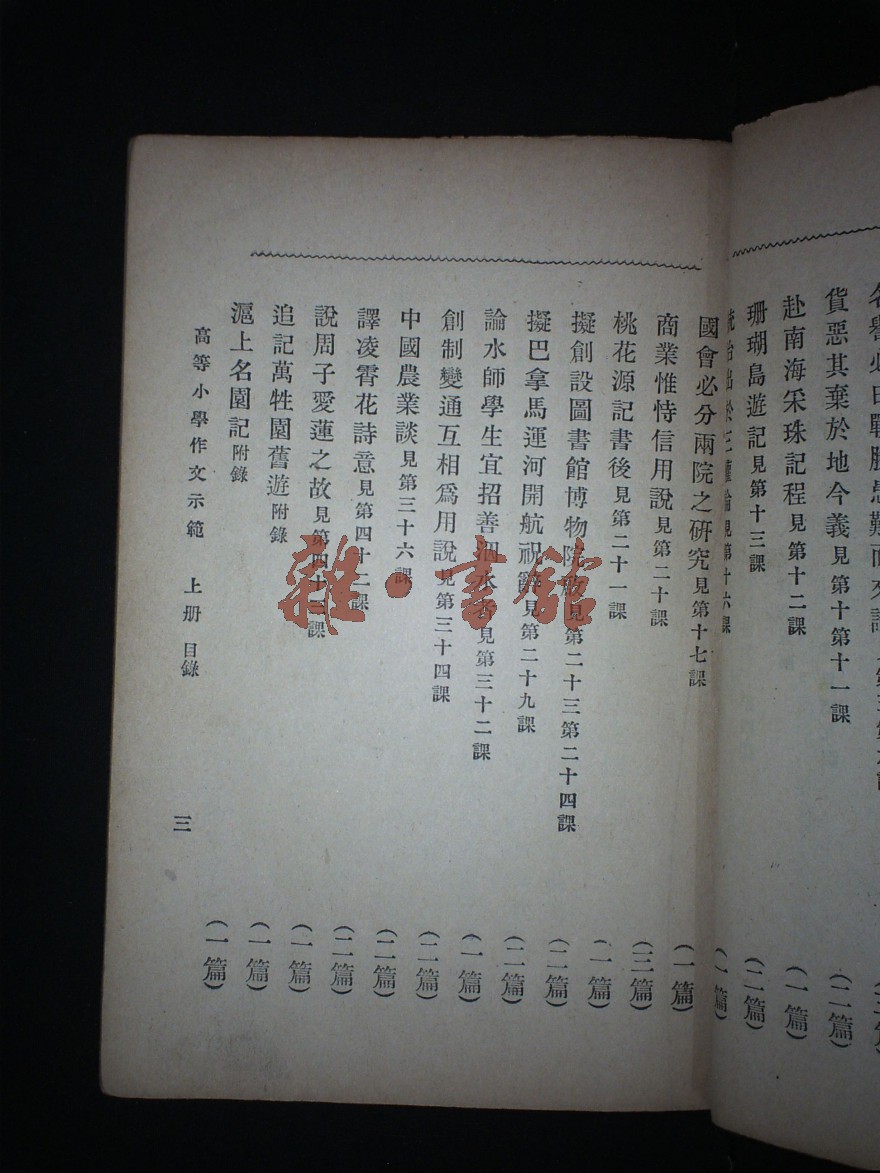 貨惡其棄於地今義見第十第十一課 (二篇)
赴南海采珠記程見第十二課 (一篇)
珊瑚島遊記見第十三課 (二篇)
出於三權論見第十六課 (一篇)
國會必分兩院之研究見第十七課 (一篇)
商業惟恃信用說見第二十課 (三篇)
桃花源記書後見第二十一課 (一篇)
擬創設圖書館博物院啟見第二十三第二十四課 (二篇)
擬巴拿馬運河開航祝辭見第二十九課 (二篇)
論水師學生宜招善泅水者見第三十二課 (一篇)
創制變通互相爲用說見第三十四課 (二篇)
中國農業談見第三十六課 (二篇)
譯凌霄花詩意見第四十二課 (二篇)
說周子愛蓮之故見第四十三課 (一篇)
追記萬牲園舊遊附錄 (一篇)
滬上名園記附錄 (一篇)
高等小學作文示範 上册 目錄 三
雜·書館